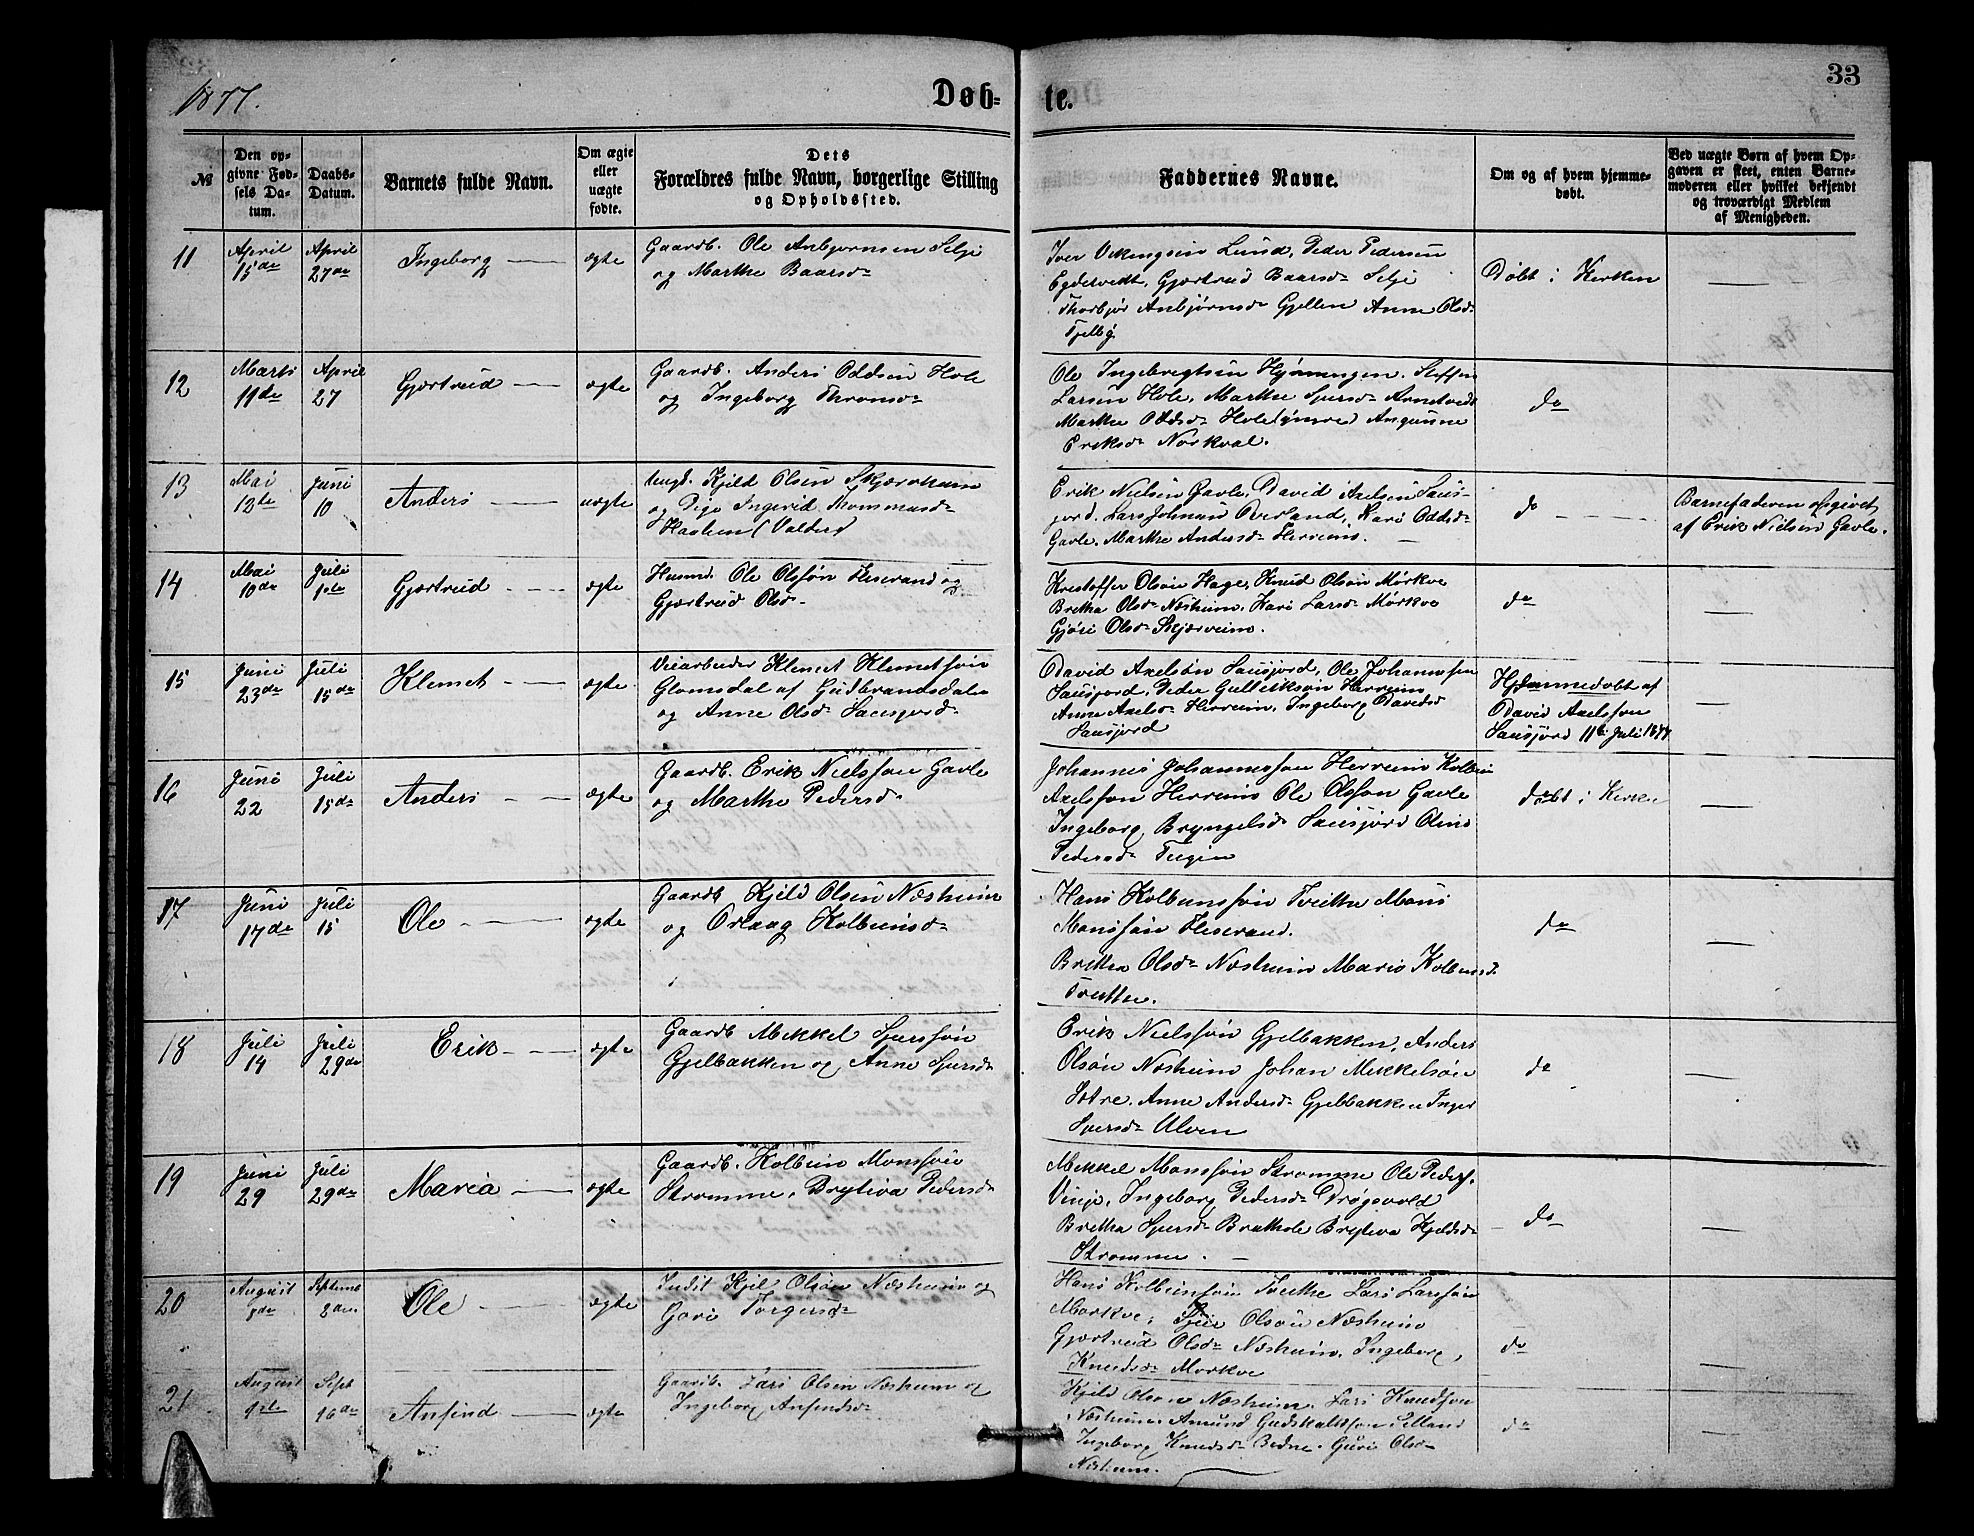 1877.
Døb-
te.
33
№
Den op-
givne Fød-
sels Da-
tum.
Daabs-
Datum.
Barnets fulde Navn.
Om ægte
eller
uægte
fødte.
Dets
Forældres fulde Navn, borgerlige Stilling
og Opholdssted.
Faddernes Navne.
Om og af hvem hjemme-
døbt.
Ved uægte Børn af hvem Op-
gaven er skeet, enten Barne-
moderen eller hvilket bekjendt
og troværdigt Medlem
af Menigheden.
11
April
15de
April
27de
Ingeborg
ægte
Gaardb. Ole Anbjørnsen Selje
og Marthe Baarsd-
Iver Vikingsen Lund, Peder Pedersen
Gjertrud Baarsd- Selje
Thorbjør Anbjørnsd- Gjellen Anne Olsd-
Døbt i Kirken
12
Marts
11de
April
27
Gjertrud
ægte
Gaardb. Anders Oddsen Hole
og Ingeborg
Ole Ingebregtsen Steffen
Larsen Hole, Marthe Sjursd-
Marthe Oddsd- Hole
Eriksd-
do
13
Mai
13te
Juni
10
Anders
uægte
Ungd. Kjeld Olsen Skjerveheim
og Pige Ingerid
(Valders)
Erik Nielsen Gavle, David Axelsen Saus-
jord, Lars Overland, Kari Oddsd-
Gavle. Marthe Andersd- Herreim.
do
Barnefaderen opgivet
af Erik Nielsen Gavle.
14
Mai
10de
Juli
1ste
Gjertrud
ægte
Husmd. Ole Olssøn og
Gjertrud Olsd-
Kristoffer Olsen Hage, Knud Olsøn Mørkve
Britha Olsd- Næsheim, Kari Larsd- Mørkve
Gjøri Olsd- Skjerveim.
do
15
Juni
23de
Juli
15de
Klemet
ægte
Veiarbeider Klemet Klemetsøn
Glomsdal af Gudbrandsdalen
og Anne Olsd- Sausjord-
David Axelsøn Sausjord, Ole Johannessen
Sausjord, Peder Gulleiksøn Herreim
Anne Axelsd- Herreim, Ingeborg Davidsd
Sausjord
Hjemmedøbt af
David Axelssøn
Sausjord 11te Juli 1877
16
Juni
22
Juli
15de
Anders
ægte
Gaardb. Erik Nielssøn Gavle
og Marthe Pedersd-
Johannes Johannessøn Herreim Kolbein
Axelssøn Herreim Ole Olssøn Gavle
Ingeborg Bryngelsd- Sausjord
Pedersd-
døbt i Kirke
17
Juni
17de
Juli
15
Ole
ægte
Gaardb Kjeld Olsen Næsheim
og Orlaug Kolbeinsd-
Hans Kolbeinssøn Tveithe Mons
Monssøn
Britha Olsd- Næsheim Maria Kolbeinsd-
Tveithe.
do
18
Juli
14
Juli
29de
Erik
ægte
Gaardb Mikkel Sjurssøn
Gjelbakken og Anne Sjursd-
Erik Nielssøn Gjelbakken, Anders
Olsøn Næsheim Johan Mikkelsøn
Anne Andersd- Gjelbakken Inger
Sjursd- Ulven
do
19
Juni
29
Juli
29de
Maria
ægte
Gaardb. Kolbein Monssøn
Strømme, Brytiva Pedersd-
Mikkel Monssøn Strømme Ole Peders.
Vinje, Ingeborg Pedersd-
Britha Sjursd- Brathole Brytiva Kjeldsd-
Strømme.
do
20
August
Septembe
8de
Ole
ægte
Indst Kjel Olsøn Næsheim og
Gøri Torgersd-
Hans Kolbeinssøn Tveithe Lars Larssøn
Mørkve, Olsøn Næsheim
Gjertrud Olsd- Næsheim. Ingeborg
Knudsd- Mørkve
do
21
August
1ste
Sept
16de
Anfind
ægte
Gaardb. Lars Olsen Næsheim og
Ingeborg Anfindsd-
Kjeld Olsen Næsheim. Lars Knudssøn
Næsheim. Amund Gudskalkssøn Selland
Ingeborg Knudsd- Guri Olsd-
Næsheim.
do